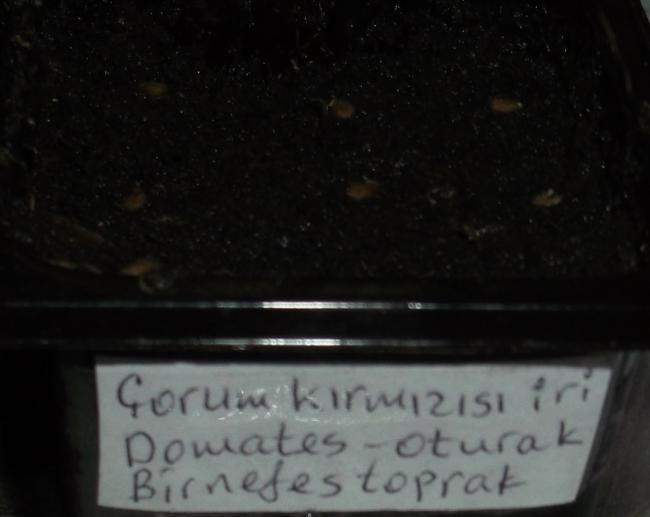 Çorum kırmızısı iri
Domates - oturak
Birnefes toprak